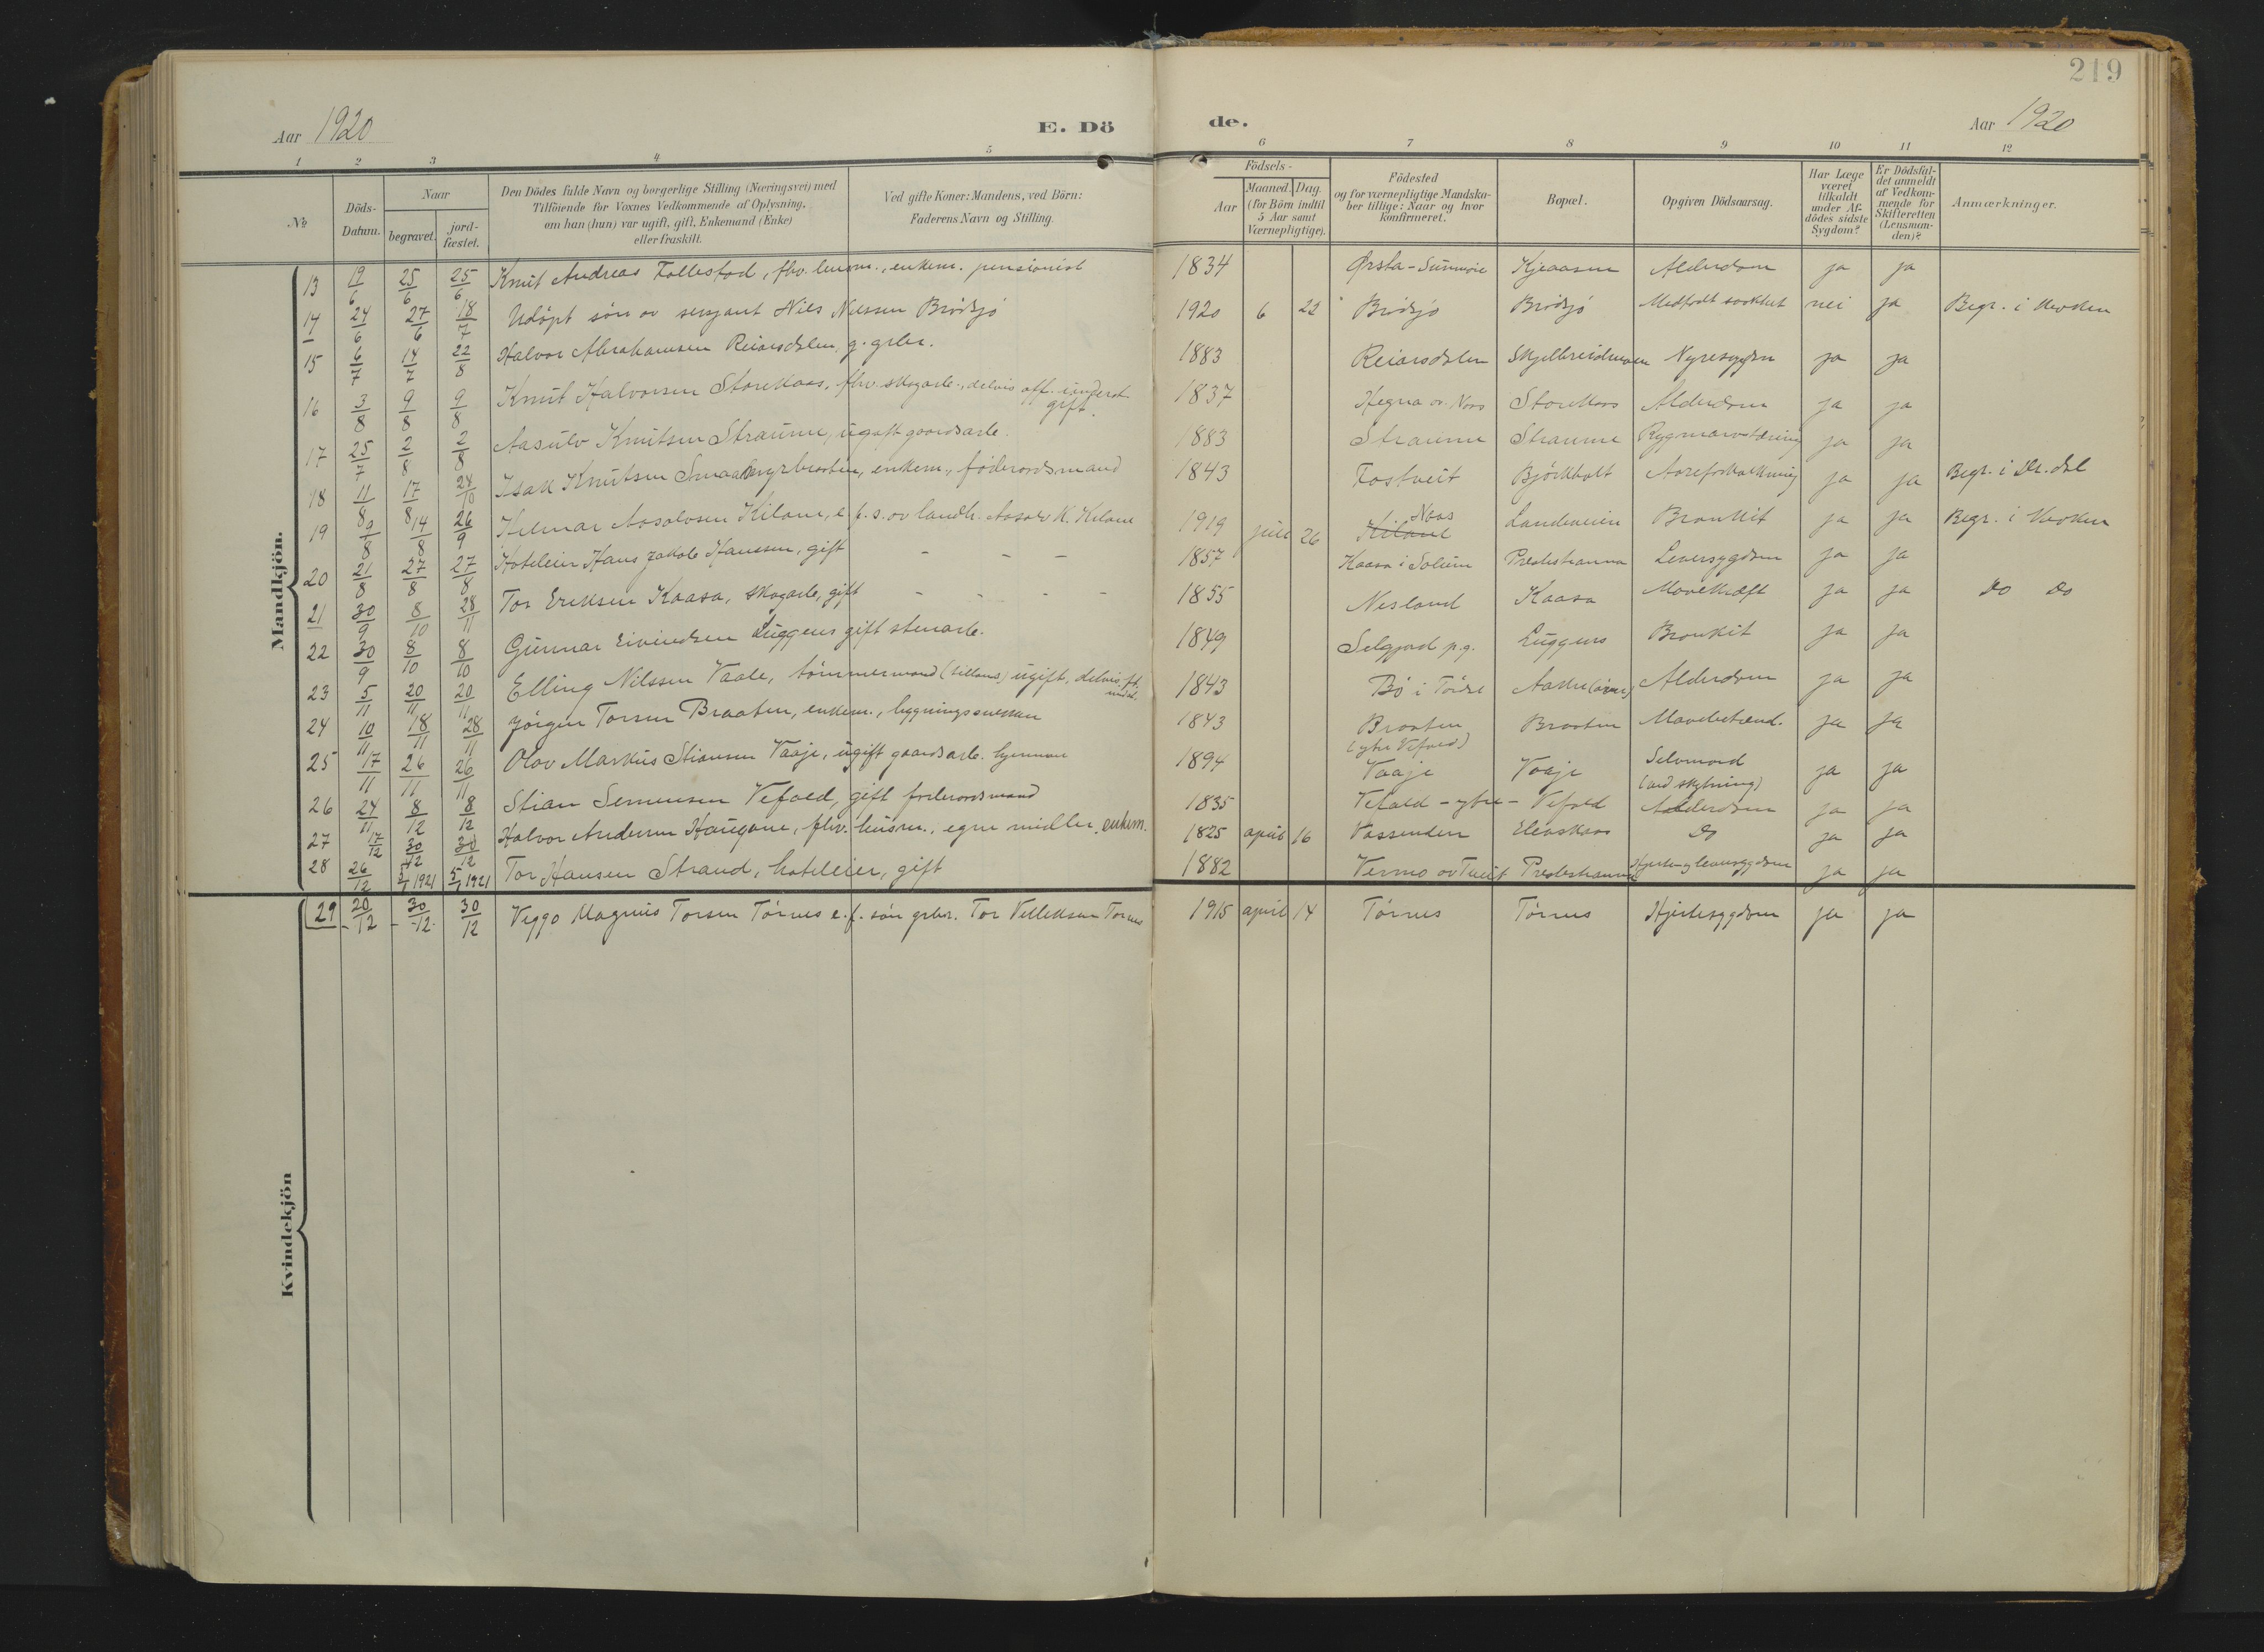 219
Aar 1920
E. Dö
de.
Aar 1920
1 2 3 4 5 6 7 8 9 10 11 12
No
Döds-Datum.
Naar
begravet.
jord-fæstet.
Den Dödes fulde Navn og borgerlige Stilling (Næringsvei) med
Tilföiende for Voxnes Vedkommende af Oplysning,
om han (hun) var ugift, gift, Enkemand (Enke)
eller fraskilt.
Ved gifte Koner: Mandens, ved Börn:
Faderens Navn og Stilling.
Födsels-
Aar
Maaned. Dag.
(for Börn indtil
5 Aar samt
Værnepligtige).
Födested
og for værnepligtige Mandska-
ber tillige: Naar og hvor
konfirmeret.
Bopæl.
Opgiven Dödsaarsag.
Har Læge
været
tilkaldt
under Af-
dödes sidste
Sygdom?
Er Dödsfal-
det anmeldt
af Vedkom-
mende for
Skifteretten
(Lensman-
den)?
Anmærkninger.
Mandkjön.
13 19/6 25/6 25/6 Knut Andreas Follestad, fhv. lensm., enkem. pensionist 1834 Ørsta-Sunmöre Kjeaasen Alderdom ja ja
14 24/6 27/6 18/7 Udöpt sön av sersjant Nils Nilssen Brödsjö 1920 6 22 Brödsjö Brödsjö Medfödt svakhet nei ja Begr. i Uvdren
15 6/7 14/7 22/8 Halvor Abrahamsen Reiarsdalen, g. grbr. 1883 Reiarsdalen Skjelbreidmoen Nyresygdom ja ja
16 3/8 9/8 9/8 Knut Halvorsen Storekaas, fhv. skogarb., delvis off. underst. gift. 1837 Hegna ov. Noras Storekaas Alderdom ja ja
17 25/7 2/8 2/8 Aasulv Knutsen Straume, ugift gaardsarb. 1883 Straume Straume Rygmarvstæring ja ja
18 11/8 17/8 24/10 Isak Knutsen Smaamyrbraaten, enkem., föderaadsmand 1843 Fostveit Björkholt Aareforkalkning ja ja Begr. i Dr.dal
19 9/8 14/8 26/9 Hilmar Aasolvsen Kiland, e. f. s. av landh. Aasolv K. Kiland 1919 juli 26 Noras Landeveien Bronkit ja ja Begr. i Uvdren
20 21/8 27/8 27/8 Hoteleier Hans Jakob Hanssen, gift - - - 1857 Kaasa i Solum Prestestranna Leversygdom ja ja
21 30/9 8/10 28/11 Tor Eriksen Kaasa, skogarb, gift - - - - 1855 Nesland Kaasa Mavekræft ja ja Do Do
22 30/9 8/10 8/10 Gunnar Eivindsen Luggens gift stenarb. 1849 Selgjord p.g. Luggens Bronkit ja ja
23 5/11 20/11 20/11 Elling Nilssen Vaale, tömmermand ugift, delvis 1843 Bö i Tördal Aakre Alderdom ja ja
24 10/11 18/11 28/11 Jörgen Torsen Braaten, enkem., bygningssnekker 1843 Braaten (ytre Vefald) Braaten Mavebetænd. ja ja
25 17/11 26/11 26/11 Olav Markus Stiansen Vaaje, ugift gaardsarb. hjemme 1894 Vaaje Vaaje Selvmord (ved skytning) ja ja
26 24/11 8/12 8/12 Stian Semunsen Vefald, gift föderaadsmand 1835 Vefald - ytre - Vefald Alderdom ja ja
27 17/12 30/12 30/12 Halvor Andersen Haugane, fhv. husm., egne midler. enkem. 1825 april 16 Vassenden Eleaskaas Do ja ja
28 26/12 5/1 1921 5/1 1921 Tor Hansen Strand, hoteleier, gift 1882 Vermo ov Tveit Prestestranna Hjerte- og leversygdom ja ja
29 20/12 30/12 30/12 Viggo Magnus Torsen Törnes e. f. sön grbr. Tor Vetleksen Törnes 1915 april 14 Törnes Törnes Hjertesygdom ja ja
Kvindekjön